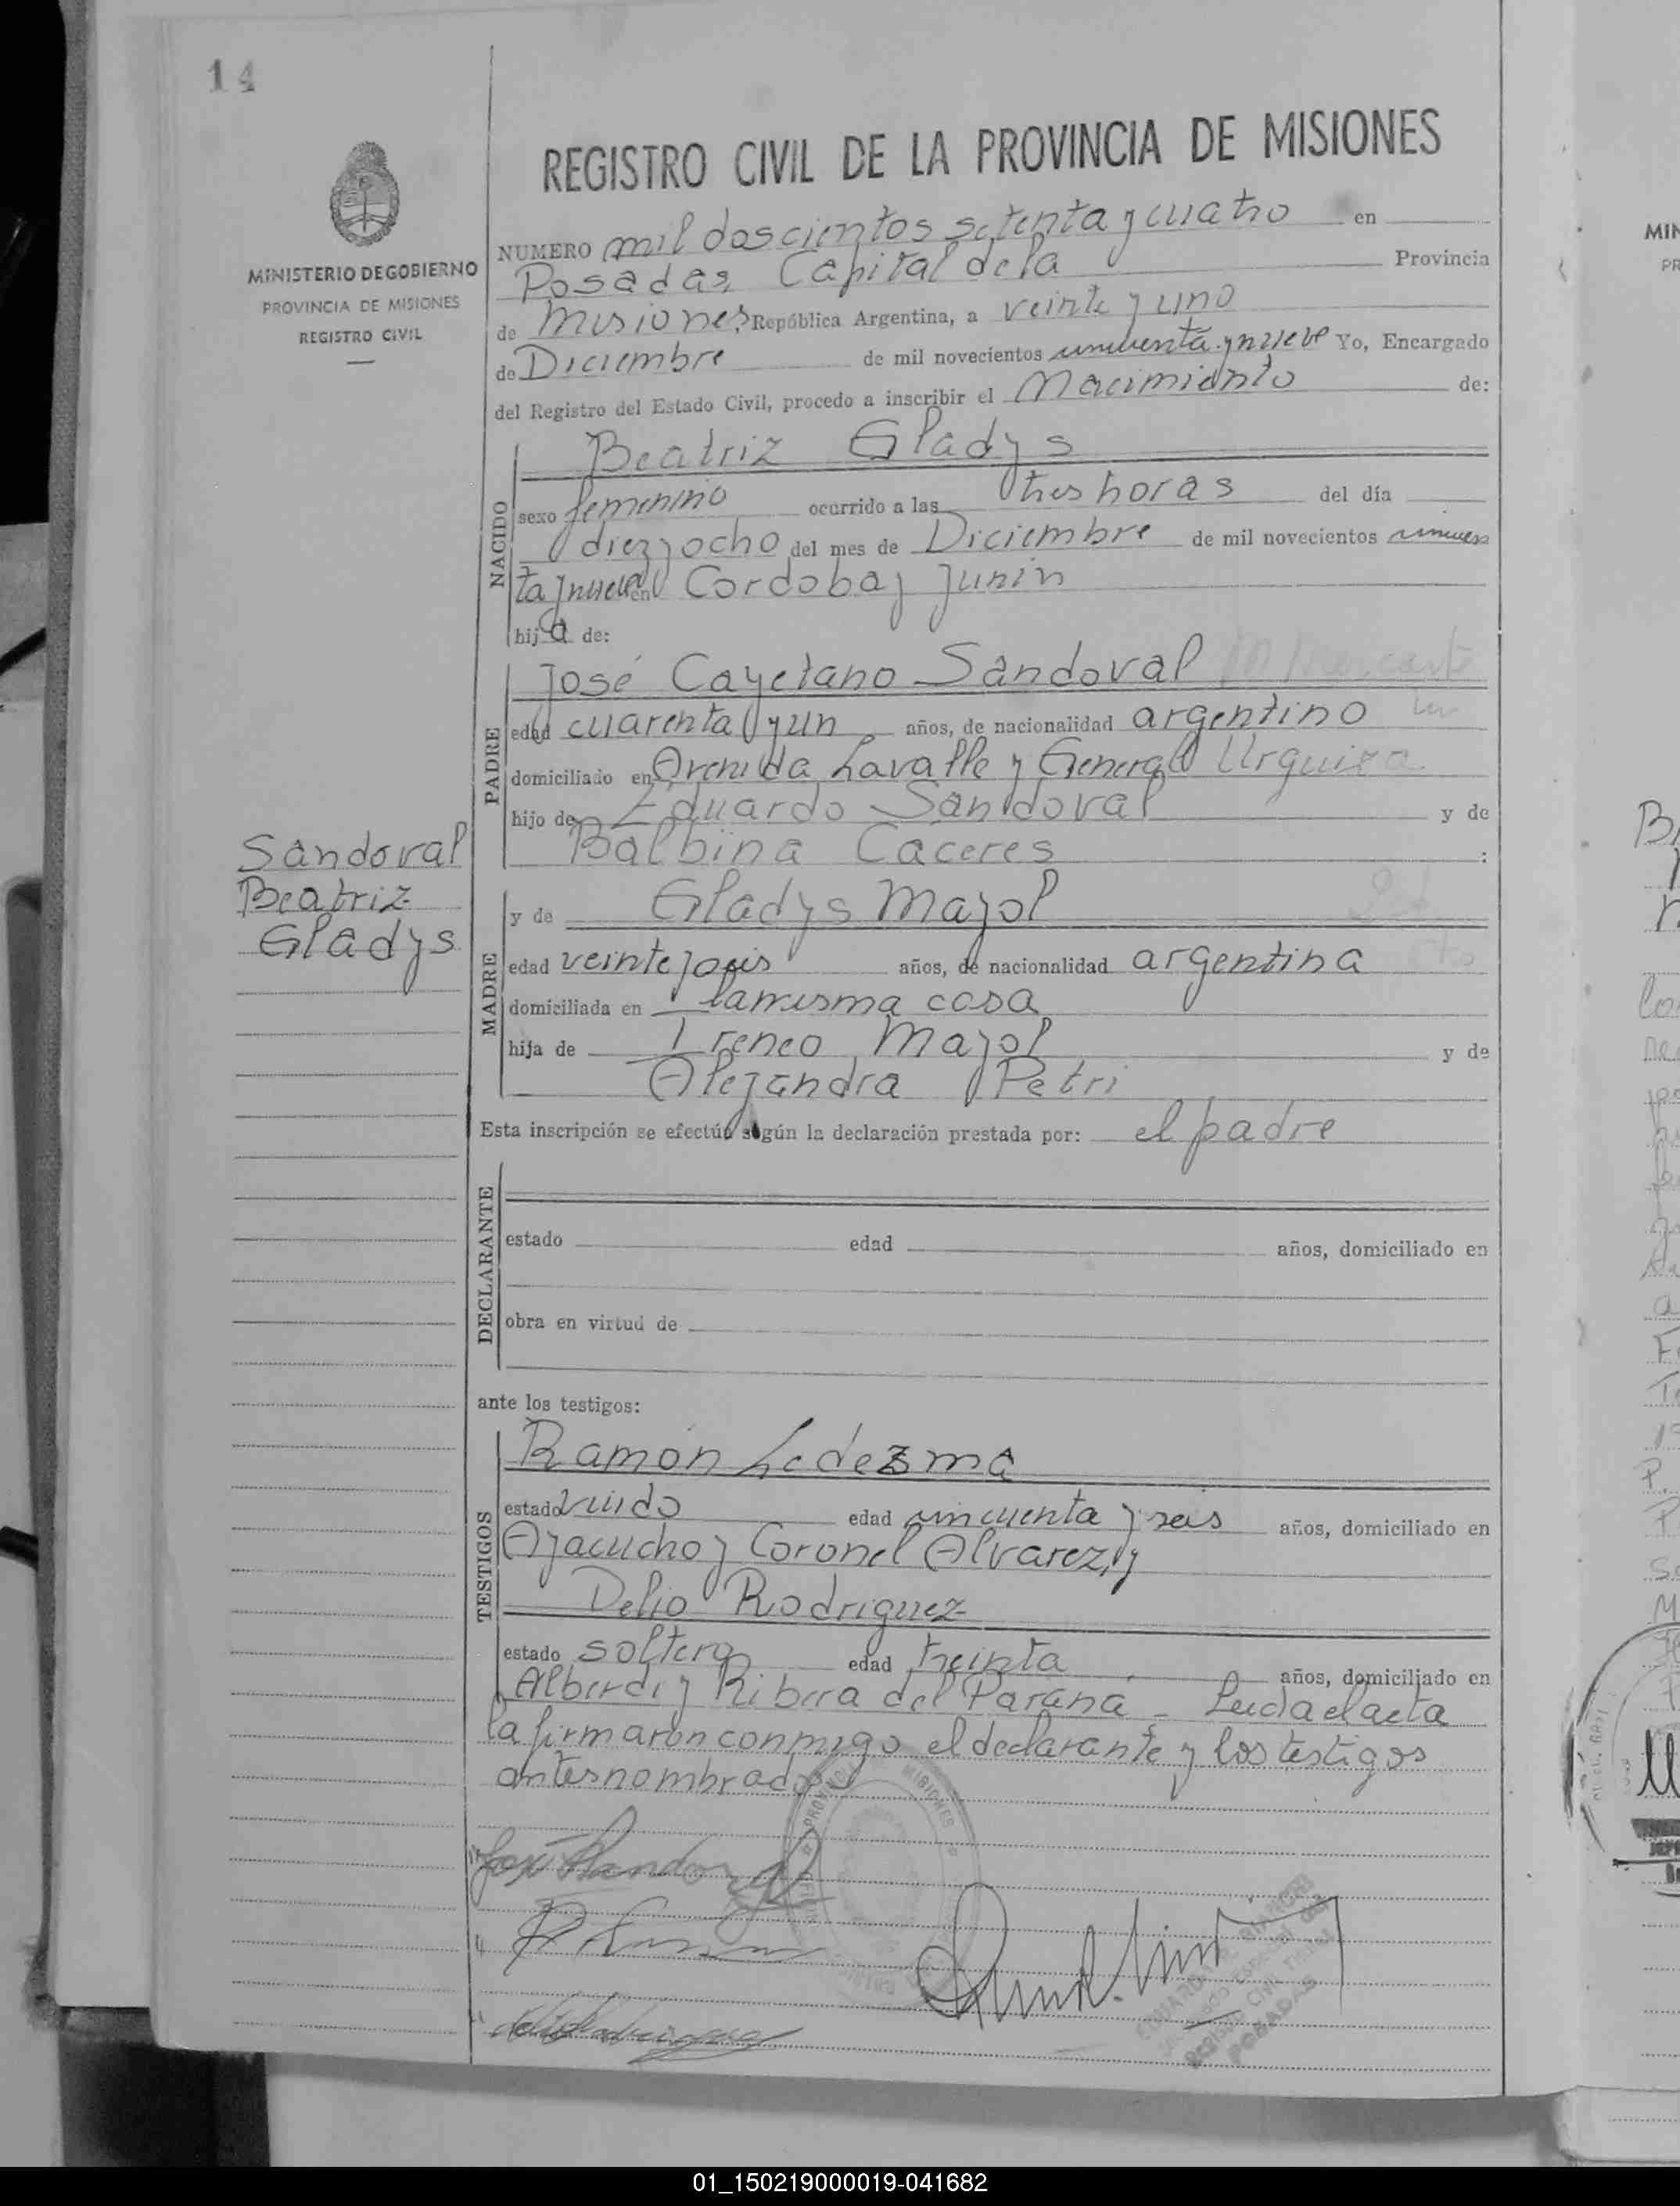 14
MINISTERIO DE GOBIERNO
PROVINCIA DE MISIONES
REGISTRO CIVIL
REGISTRO CIVIL DE LA PROVINCIA DE MISIONES
NUMERO mil doscientos setenta y cuatro en
Posadas, Capital de la Provincia
de Misiones, República Argentina, a veinte y uno
de Diciembre de mil novecientos cincuenta y nueve Yo, Encargado
del Registro del Estado Civil, procedo a inscribir el Nacimiento de:
NACIDO
Beatriz Gladys
sexo femenino ocurrido a las tres horas del día
diez y ocho del mes de Diciembre de mil novecientos cincuen
ta y nueve en Cordoba y Junin
hija de:
PADRE
José Cayetano Sandoval
edad cuarenta y un años, de nacionalidad argentino
domiciliado en Avenida Lavalle y General Urquiza
hijo de Eduardo Sandoval y de
Balbina Caceres :
MADRE
y de Gladys Mayol
edad veinte y seis años, de nacionalidad argentina
domiciliada en la misma casa
hija de Ireneo Mayol y de
Alejandra Petri
Esta inscripción se efectúa según la declaración prestada por: el padre
Sandoval
Beatriz
Gladys
DECLARANTE
estado edad años, domiciliado en
obra en virtud de
ante los testigos:
TESTIGOS
Ramón Ledezma
estado viudo edad cincuenta y seis años, domiciliado en
Ayacucho y Coronel Alvarez, y
Delio Rodriguez
estado soltero edad treinta años, domiciliado en
Alberdi y Ribera del Paraná - Leida el acta
la firmaron conmigo el declarante y los testigos
antes nombrados
POSADAS
01_150219000019-041682